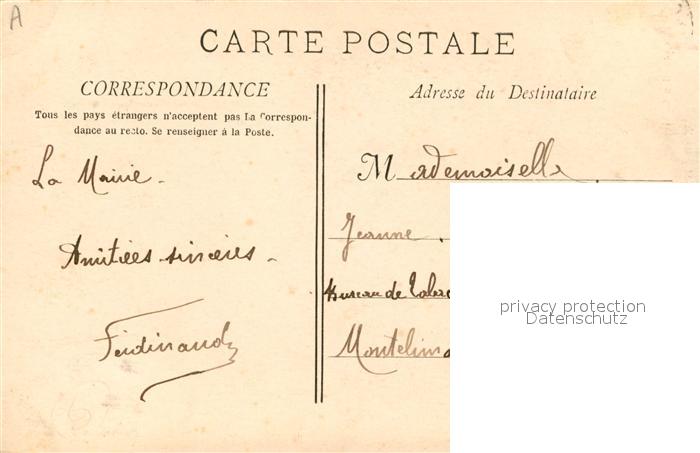 A
CARTE POSTALE
CORRESPONDANCE
Tous les pays étrangers n'acceptent pas la Correspon-
dance au recto. Se renseigner à la Poste.
La Mairie.
Amitiées sincères.
Ferdinand
Adresse du Destinataire
Mademoiselle
Jeanne.
Bureau de Tabac
Montelima
privacy protection
Datenschutz